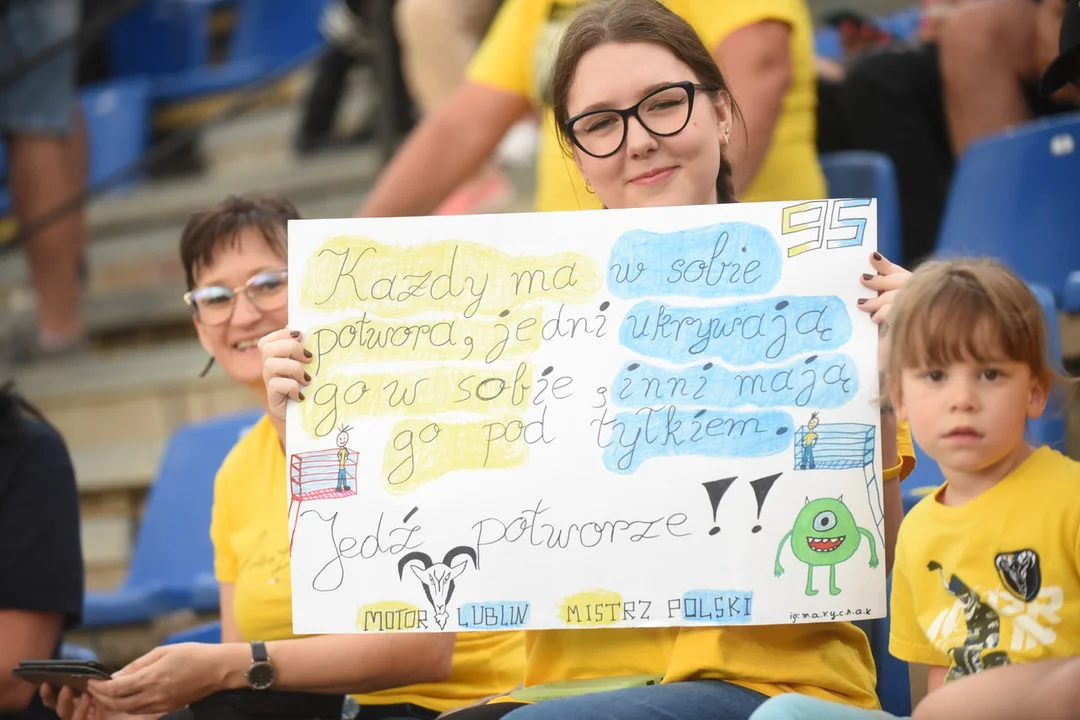 95
Każdy ma w sobie
potwora, jedni ukrywają
go w sobie, inni mają
go pod tyłkiem.
Jedź potworze!!
MOTOR LUBLIN MISTRZ POLSKI
ig:m.a.r.y.c.h.a.k